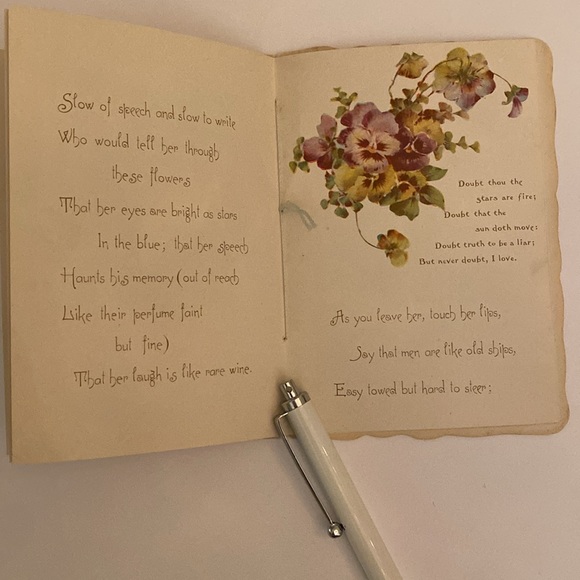 Slow of speech and slow to write
Who would tell her through
these flowers
That her eyes are bright as stars
In the blue; that her speech
Haunts his memory (out of reach
Like their perfume faint
but fine)
That her laugh is like rare wine.
Doubt thou the
stars are fire;
Doubt that the
sun doth move;
Doubt truth to be a liar;
But never doubt, I love.
As you leave her, touch her lips,
Say that men are like old ships,
Easy towed but hard to steer;